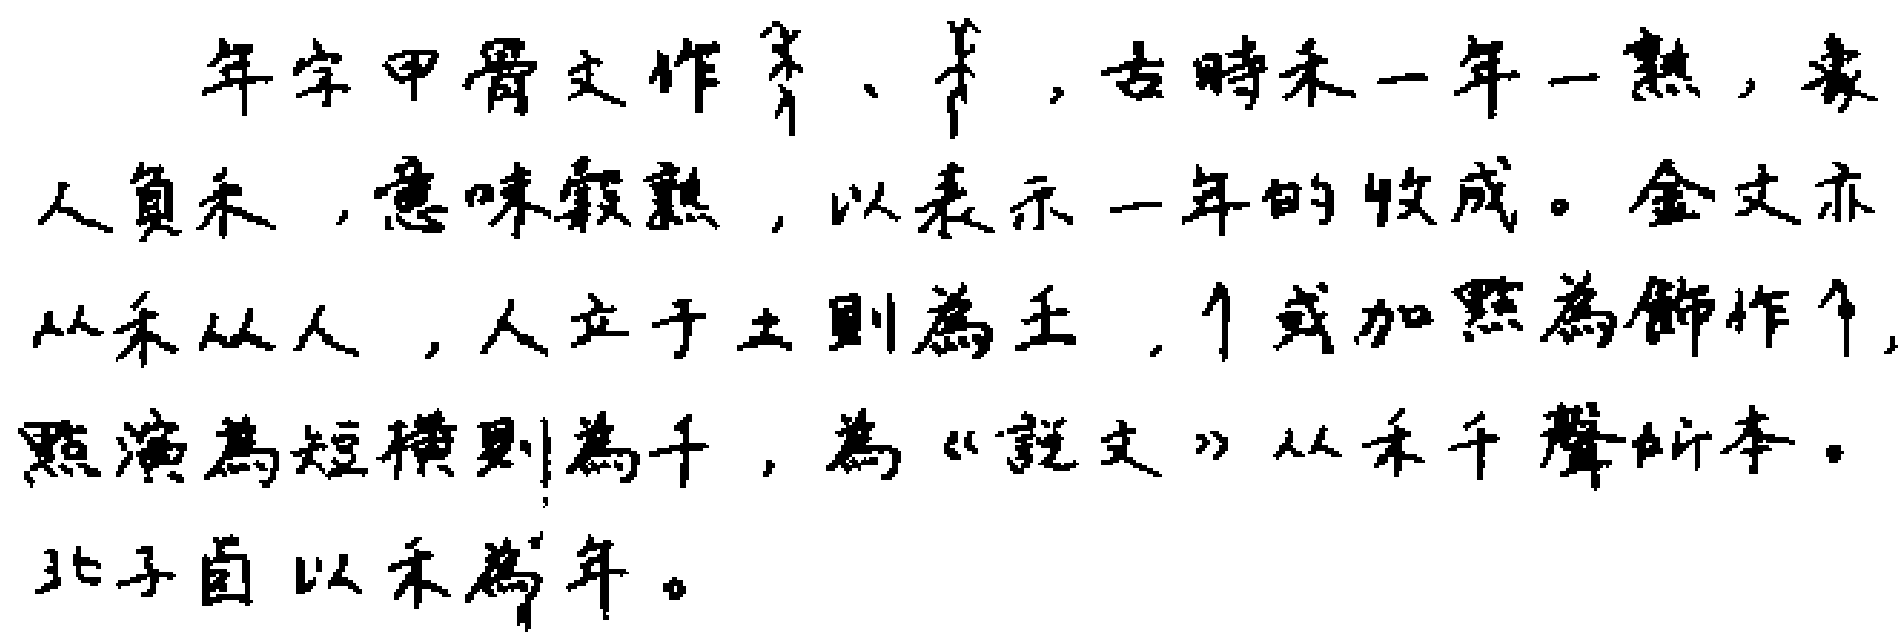 年字甲骨文作、，古時禾一年一熟，象
人負禾，意味穀熟，以表示一年的收成。金文亦
从禾从人，人立于土則為𡈼，或加點為飾作，
點演為短橫則為千，為《說文》从禾千聲所本。
北子卣以禾為年。